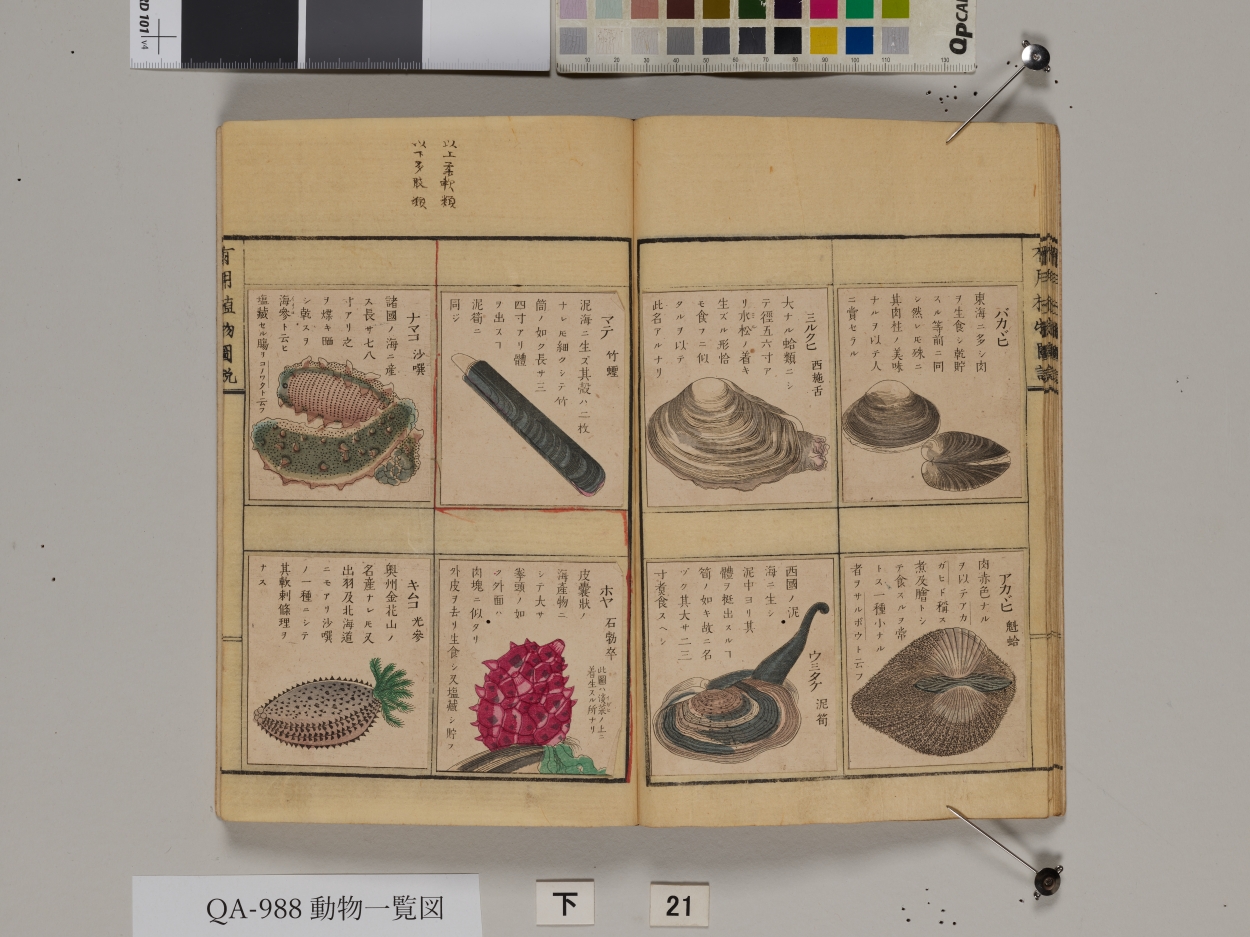 以上柔軟類
以下多肢類
バカガヒ
東海ニ多シ肉
ヲ生食シ乾貯
スル等前ニ同
シ然レモ殊ニ
其肉柱ノ美味
ナルヲ以テ人
ニ賞セラル
ミルクヒ 西施舌
大ナル蛤類ニシ
テ徑五六寸ア
リ水松ノ着キ
生ズル形恰
モ食フニ似
タルヲ以テ
此名アルナリ
アカヾヒ 魁蛤
肉赤色ナル
ヲ以テアカ
ガヒト稱ス
煮及膾トシ
テ食スルヲ常
トス一種小ナル
者ヲサルボウト云フ
ウミタケ 泥筍
西國ノ泥
海ニ生シ
泥中ヨリ其
體ヲ挺出スルヿ
筍ノ如キ故ニ名
ヅク其大サ二三
寸煮食スヘシ
マテ 竹蟶
泥海ニ生ズ其殼ハ二枚
ナレモ細クシテ竹
筒ノ如ク長サ三
四寸アリ體
ヲ出スヿ
泥筍ニ
同ジ
ナマコ 沙噀
諸國ノ海ニ産
ス長サ七八
寸アリ之
ヲ煠キ晒
シ乾スヲ
海參ト云ヒ
塩藏セル腸ヲコノワタト云フ
ホヤ 石勃卒
皮嚢狀ノ
海産物ニ
シテ大サ
拳頭ノ如
ク外面ハ
肉塊ニ似タリ
外皮ヲ去リ生食シ又塩藏シ貯フ
此圖ハ淡菜ノ上ニ
着生スル所ナリ
キムコ 光參
奥州金花山ノ
名産ナレモ又
出羽及北海道
ニモアリ沙噀
ノ一種ニシテ
其軟刺條理ヲ
ナス
有用植物圖說
QA-988 動物一覧図
下
21
QPCARD 101
v4
10 20 30 40 50 60 70 80 90 100 110 130